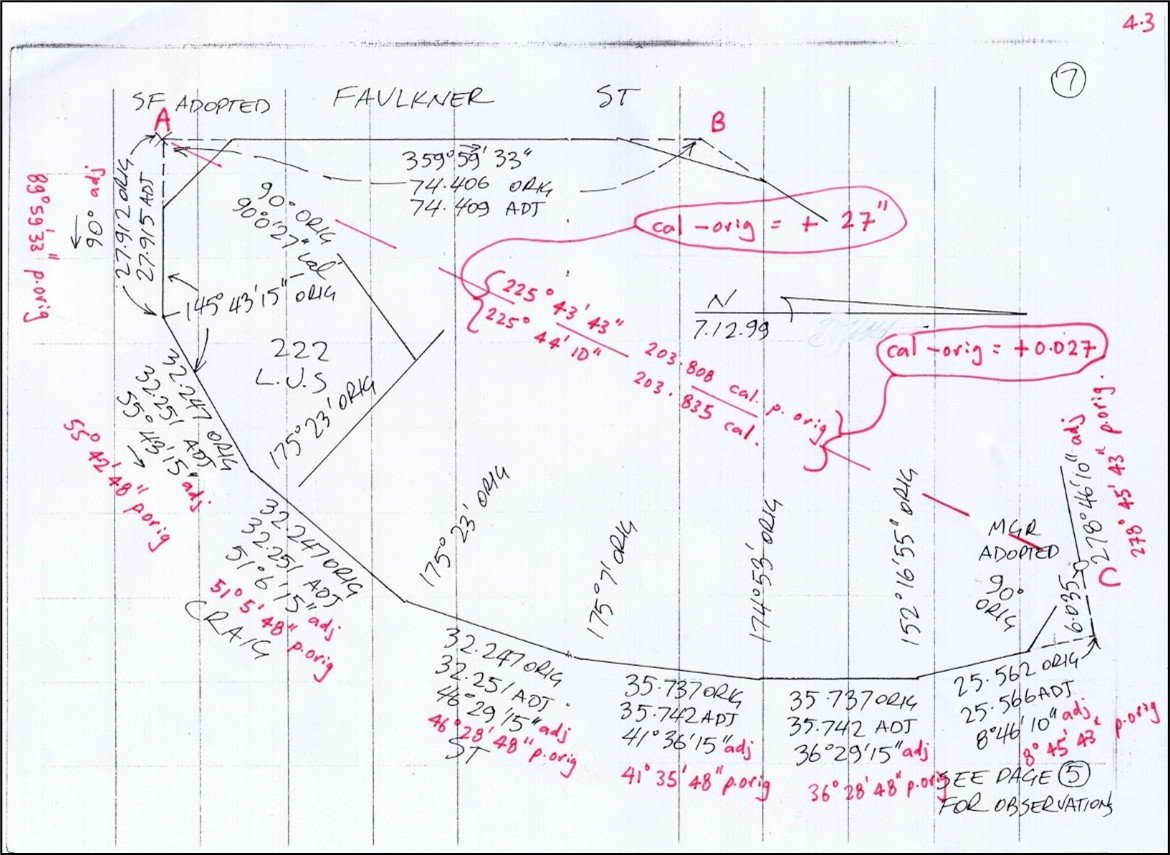 4.3
7
SF ADOPTED
FAULKNER ST
A
B
359°59'33"
74.406 ORIG
74.409 ADJ
cal - orig = + 27"
89°59'33" p.orig
90° adj
27.912 ORIG
27.915 ADJ
90° ORIG
90°0'27" cal
145°43'15" ORIG
222
L.U.S
175°23' ORIG
225°43'43"
225°44'10"
203.808 cal. p.orig
203.835 cal.
N
7.12.99
cal - orig = +0.027
32.247 ORIG
32.251 ADJ
55°43'15" adj
55°42'48" p.orig
32.247 ORIG
32.251 ADJ
51°6'15" adj
51°5'48" p.orig
CRAIG
175°23' ORIG
32.247 ORIG
32.251 ADJ.
46°29'15" adj
46°28'48" p.orig
ST
175°7' ORIG
35.737 ORIG
35.742 ADJ
41°36'15" adj
41°35'48" p.orig
174°53' ORIG
35.737 ORIG
35.742 ADJ
36°29'15" adj
36°28'48" p.orig
152°16'55" ORIG
MGR
ADOPTED
90°
ORIG
6.035
C
278°46'10" adj
278°45'43" p.orig.
25.562 ORIG
25.566 ADJ
8°46'10" adj
8°45'43" p.orig
SEE PAGE 5
FOR OBSERVATIONS